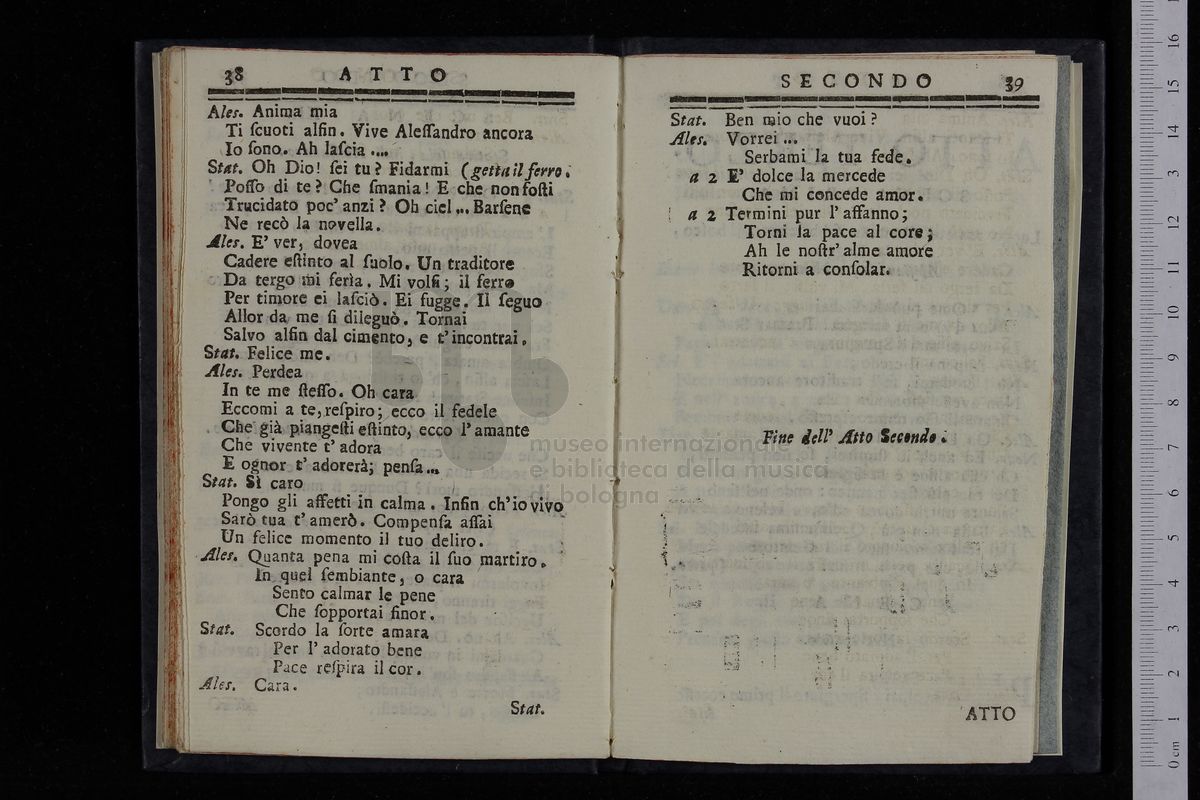 38 ATTO
Ales. Anima mia
Ti ſcuoti alfin. Vive Aleſſandro ancora
Io ſono. Ah laſcia ....
Stat. Oh Dio! ſei tu? Fidarmi (getta il ferro.
Poſſo di te? Che ſmania! E che non foſti
Trucidato poc' anzi? Oh ciel ... Barſene
Ne recò la novella.
Ales. E' ver, dovea
Cadere eſtinto al ſuolo. Un traditore
Da tergo mi ferìa. Mi volſi; il ferro
Per timore ei laſciò. Ei fugge. Il ſeguo
Allor da me ſi dileguò. Tornai
Salvo alfin dal cimento, e t' incontrai.
Stat. Felice me.
Ales. Perdea
In te me ſteſſo. Oh cara
Eccomi a te, reſpiro; ecco il fedele
Che già piangeſti eſtinto, ecco l' amante
Che vivente t' adora
E ognor t' adorerà; penſa...
Stat. Sì caro
Pongo gli affetti in calma. Infin ch' io vivo
Sarò tua t' amerò. Compenſa aſſai
Un felice momento il tuo deliro.
Ales. Quanta pena mi coſta il ſuo martiro.
In quel ſembiante, o cara
Sento calmar le pene
Che ſopportai finor.
Stat. Scordo la ſorte amara
Per l' adorato bene
Pace reſpira il cor.
Ales. Cara.
Stat.
SECONDO 39
Stat. Ben mio che vuoi?
Ales. Vorrei ...
Serbami la tua fede.
a 2 E' dolce la mercede
Che mi concede amor.
a 2 Termini pur l' affanno;
Torni la pace al core;
Ah le noſtr' alme amore
Ritorni a conſolar.
Fine dell' Atto Secondo.
ATTO
museo internazionale
e biblioteca della musica
di bologna
0 cm 1 2 3 4 5 6 7 8 9 10 11 12 13 14 15 16